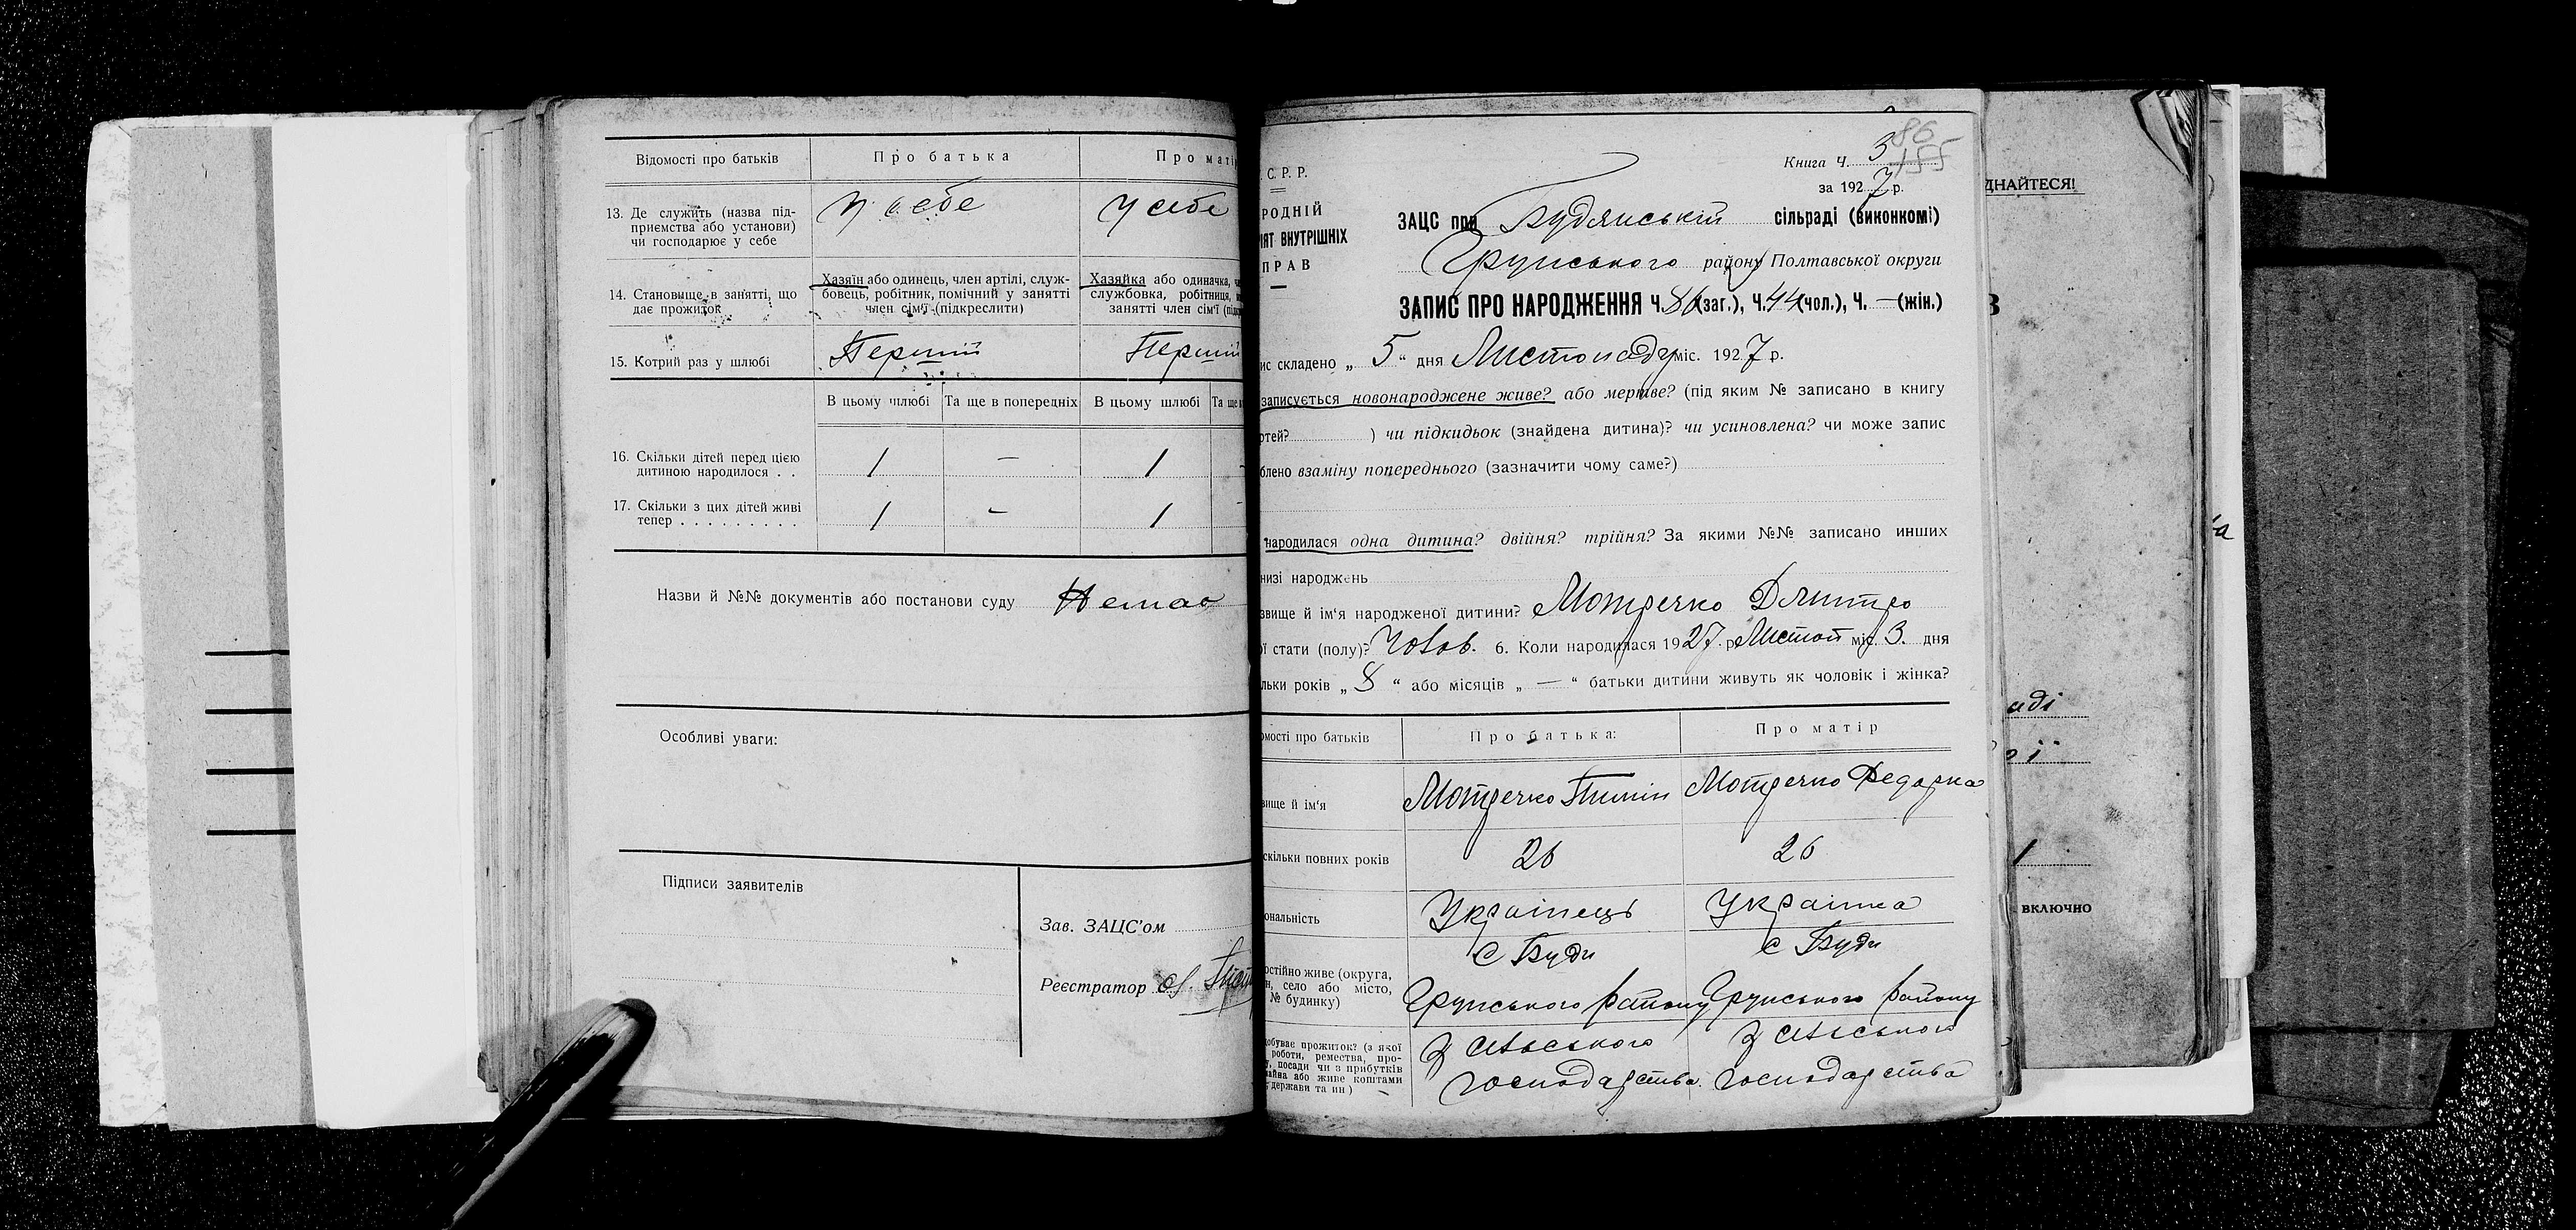 Відомості про батьків
Про батька
Про матір
13. Де служить (назва під-
приємства або установи)
чи господарює у себе
У себе
У себе
14. Становище в занятті, що
дає прожиток
Хазяїн або одинець, член артілі, служ-
бовець, робітник, помічний у занятті
член сім'ї (підкреслити)
Хазяйка або одиначка,
службовка, робітниця,
занятті член сім'ї
15. Котрий раз у шлюбі
Перший
Перший
В цьому шлюбі
Та ще в попередніх
В цьому шлюбі
Та ще
16. Скільки дітей перед цією
дитиною народилося . .
1
—
1
17. Скільки з цих дітей живі
тепер . . . . . . . . .
1
—
1
Назви й №№ документів або постанови суду Немає
Особливі уваги:
Підписи заявителів
Зав. ЗАЦС'ом
Реєстратор
86
155
Книга Ч. 3
за 1927 р.
С. Р. Р.
РОДНІЙ
ІЯТ ВНУТРІШНІХ
ПРАВ
ЗАЦС при Будянській сільраді (виконкомі)
Грунського району Полтавської округи
ЗАПИС ПРО НАРОДЖЕННЯ Ч. 86 (заг.), Ч. 44 (чол.), Ч. — (жін.)
ис складено „ 5 “ дня Листопаду міс. 1927 р.
записується новонароджене живе? або мертве? (під яким № записано в книгу
ртей? ) чи підкидьок (знайдена дитина)? чи усиновлена? чи може запис
блено взаміну попереднього (зазначити чому саме?)
народилася одна дитина? двійня? трійня? За якими №№ записано инших
низі народжень
звище й ім'я народженої дитини? Мотречко Дмитро
ої стати (полу)? Чолов. 6. Коли народилася 1927 р. Листоп міс. 3. дня
льки років „ 8 “ або місяців „ — “ батьки дитини живуть як чоловік і жінка?
омості про батьків
Про батька:
Про матір
вище й ім'я
Мотречко Пимін
Мотречко Федорка
скільки повних років
26
26
ональність
Українець
Українка
остійно живе (округа,
н, село або місто,
№ будинку)
с Буди
Грунського району
с Буди
Грунського району
обуває прожиток? (з якої
роботи, ремества, про-
, посади чи з прибутків
майна або живе коштами
держави та ин)
З сільського
господарства.
З сільського
господарства
ДНАЙТЕСЯ!
В
аді
ої
1
ВКЛЮЧНО